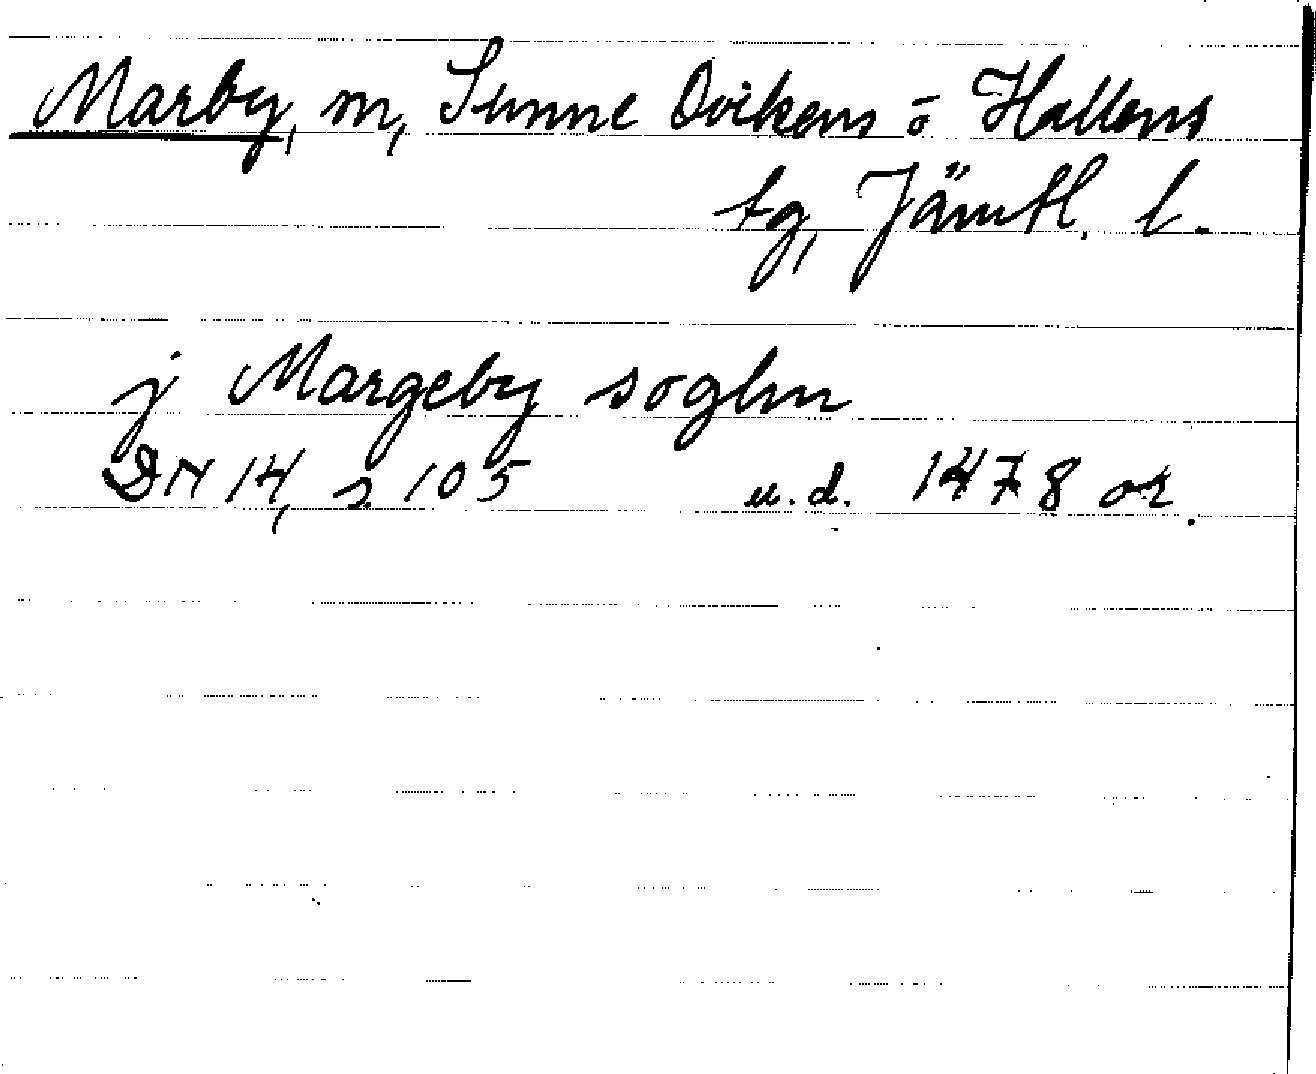 Marby, m, Sunne Ovikens o Hallens
tg, Jämtl. l.
j Margeby soghn
DN 14, s. 105 u.d. 1478 or.